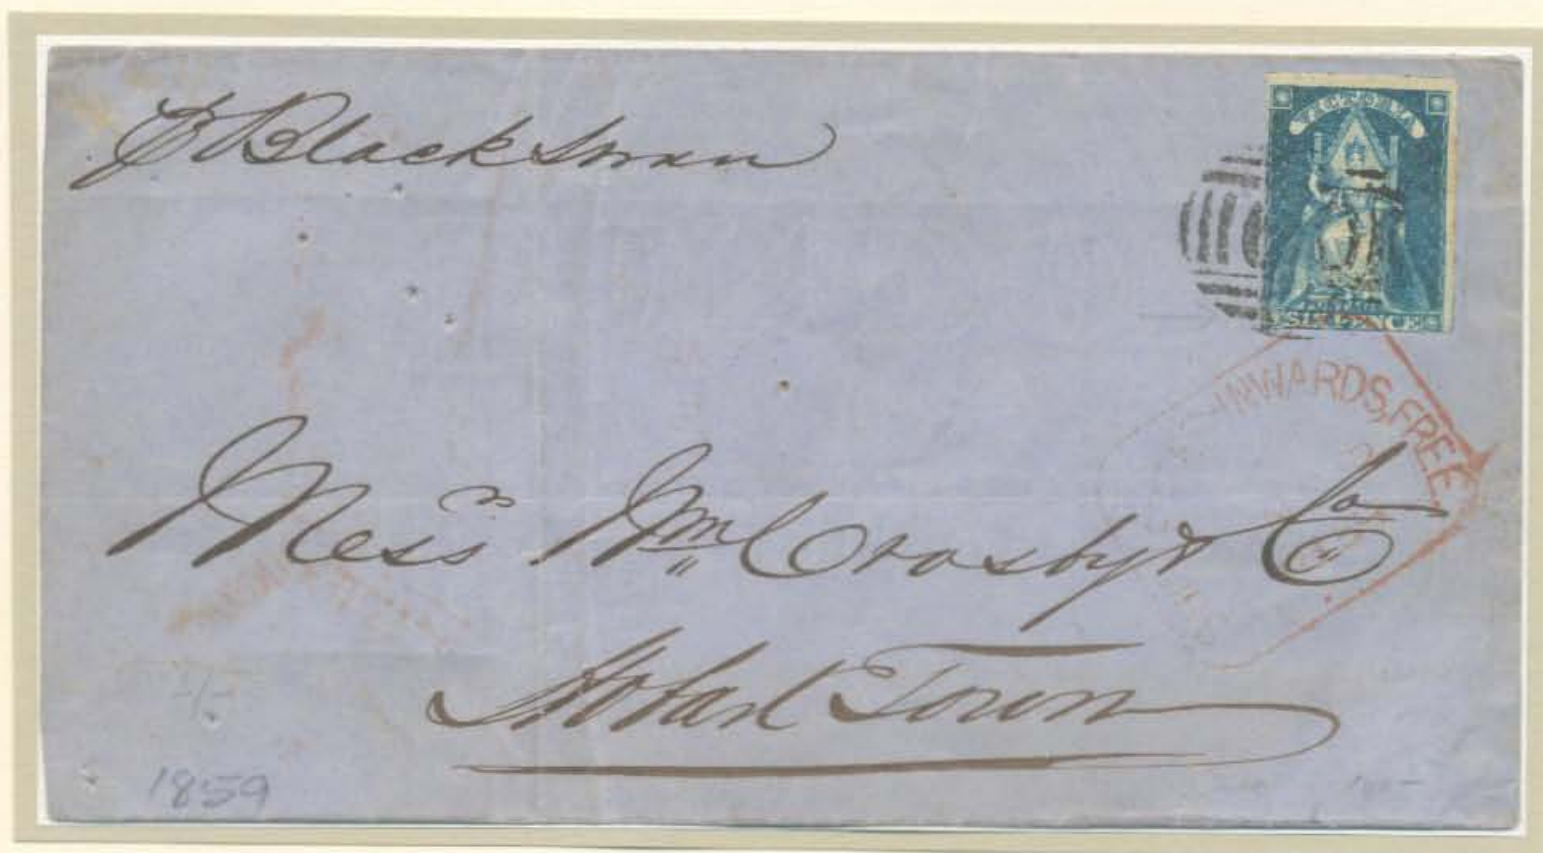 P Black Swan
VICTORIA
SIX PENCE
INWARDS, FREE
Mess.rs Wm Crosby & Co
Hobart Town
1859